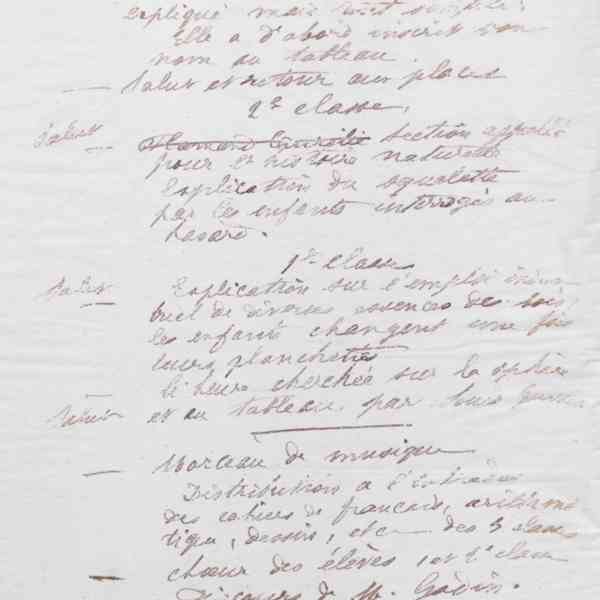 expliqué mais tout
Elle a d'abord inscrit son
nom au tableau.
— Salut et retour aux places
2e classe.
Salut — section appelée
pour l'histoire naturelle
Explication du squelette
par les enfants interrogés au
hasard.
1re Classe
Salut — Explication sur l'emploi
de diverses essences de bois,
les enfants changent une fois
leurs planchettes
L'heure cherchée sur la sphère
Salut et au tableau par Louis
— Morceau de musique
Distribution à l'
des cahiers de français, arithmé
tique, dessin, etc des 3 classes
— chœur des élèves 1re et 2e classe
Discours de M. Godin.